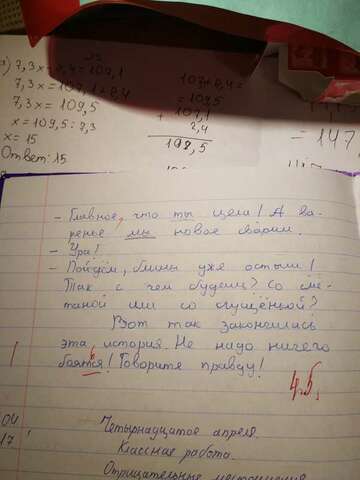 15
а) 7,3x - 2,4 = 107,1
7,3x = 107,1 + 2,4
7,3x = 109,5
x = 109,5 : 7,3
x = 15
Ответ: 15
107 + 2,4 =
= 109,5
+ 107,1
2,4
109,5
= 147
- Главное, что ты цела! А ва-
ренье мы новое сварим.
- Ура!
- Пойдём, блины уже остыли!
Так с чем будешь? Со сме-
таной или со сгущёнкой?
Вот так закончилась
эта история. Не надо ничего
боятся! Говорите правду!
ь
4
5
04
17
Четырнадцатое апреля.
Классная работа.
Отрицательные местоимения